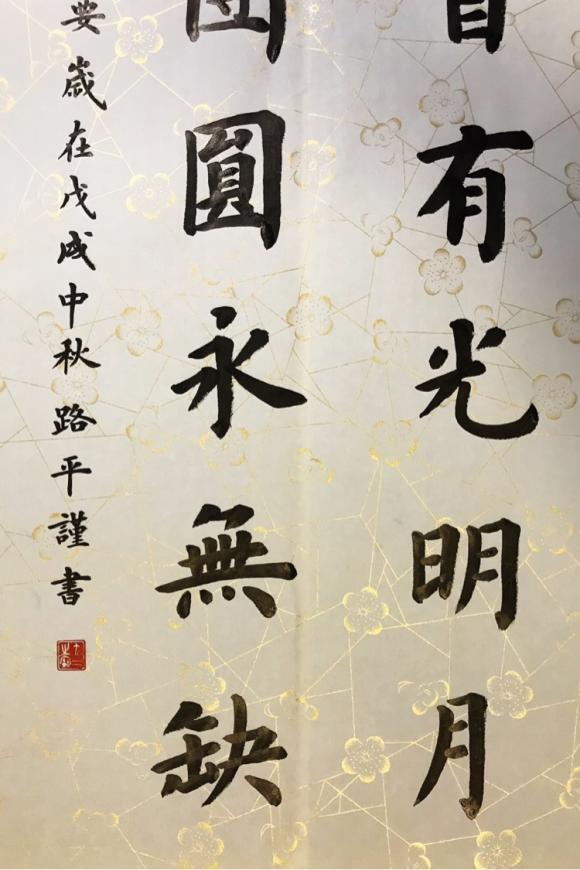 有光明月
圓永無缺
歲在戊戌中秋路平謹書